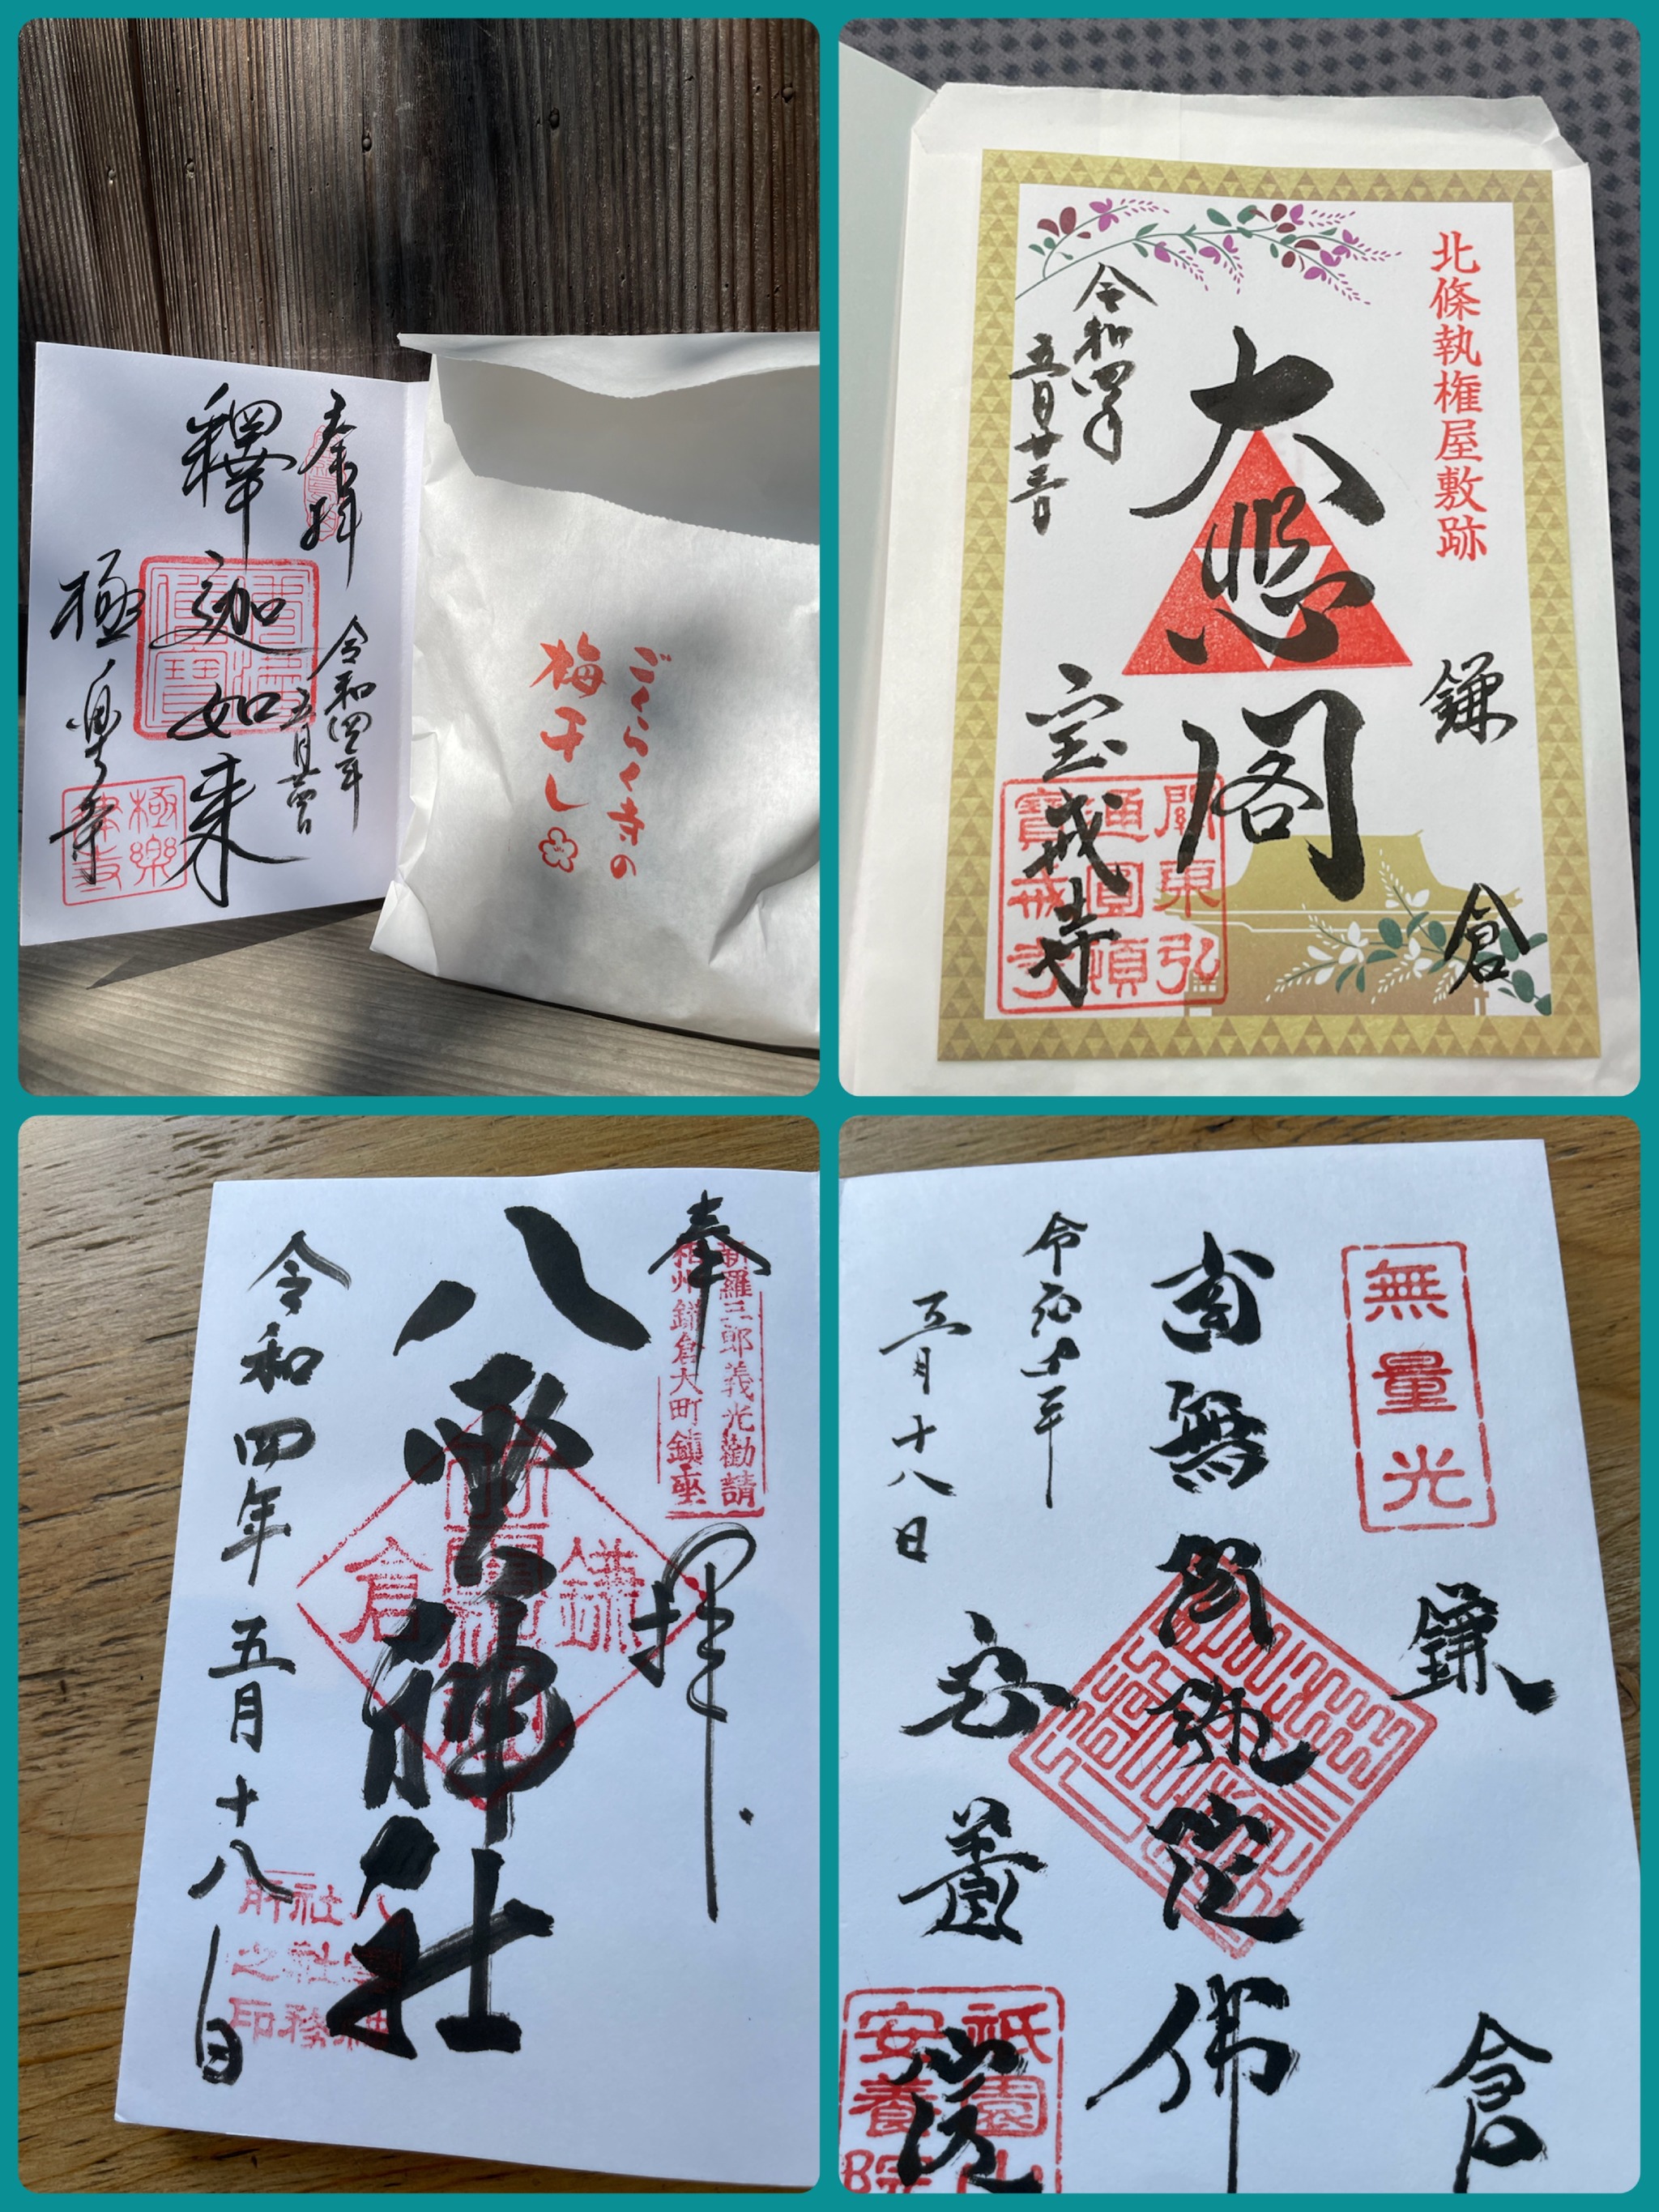 奉拝
令和四年
五月廿四日
釋迦如来
極楽寺
極樂
ごくらく寺の
梅干し
北條執権屋敷跡
鎌倉
大悲閣
令和四年
五月廿三日
宝戒寺
關東弘
通圓頓
寶戒寺
奉拝
新羅三郎義光勧請
相州鎌倉大町鎮座
八雲神社
鎌倉
令和四年五月十八日
八雲神
社社務
所之印
無量光
鎌倉
南無阿弥陀佛
令和四年
五月十八日
安養院
祇園山
安養院